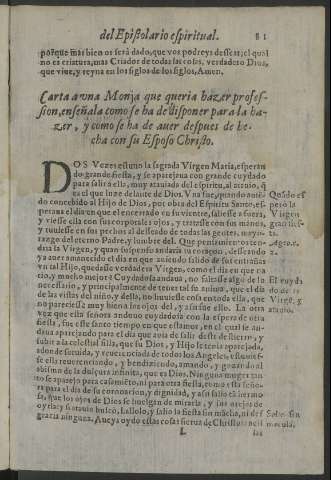 del Epistolario espiritual. 81
porque mas bien os será dado, que vos podreys dessear; el qual
no es criatura, mas Criador de todas las cosas, verdadero Dios,
que viue, y reyna en los siglos de los siglos, Amen.
Carta a vna Monja que queria hazer profes-
sion, enseñala como se ha de disponer para la ha-
zer, y como se ha de auer despues de he-
cha con su Esposo Christo.
DOS Vezes estuuo la sagrada Virgen Maria, esperan
do grande fiesta, y se aparejaua con grande cuydado
para salir a ella, muy atauiada del espiritu, al atauio, q̃
es el que luze delante de Dios. Vna fue, quando auiẽ
do concebido al Hijo de Dios, por obra del Espiritu Santo, es-
peraua el dia en que el encerrado en su vientre, saliesse a fuera,
y viesse ella con sus corporales ojos, y tratasse con sus manos,
y tuuiesse en sus pechos al desseado de todas las gentes, mayo-
razgo del eterno Padre, y lumbre del. Que pensamientos ten-
dria la Virgen, y quan suspenso andaria su coraçon, desseando
ya auer amanecido el dia en que auiendo salido de sus entrañas
vn tal Hijo, quedasse verdadera Virgen, como el dia en que na
cio, y mucho mejor? Cuydadosa andaua, no faltasse algo de lo
necessario, y principalmente de tener tal su anima, que el dia
de las vistas del niño, y della, no huuiesse cosa en toda ella, que
no pareciesse muy buena a los ojos del, y assi fue ello. La otra
vez que esta señora anduuo cuydadosa con la espera de otra
fiesta, fue este santo tiempo en que estamos, en el qual se an-
daua aparejando para el dia que auia de salir deste destierro, y
subir a la celestial silla, que su Dios, y Hijo le tenia aparejada,
adonde seruida, y reuerenciada de todos los Angeles, estuuies-
se ella reuerenciando, y bendiziendo, amando, y gozando al
abismo de la dulçura infinita, que es Dios. Ninguna muger tan
to se aparejo para casamiẽto, ni para otra fiesta, como esta seño-
ra para el dia de su coronacion, y dignidad, y assi salio tã hermo-
sa, que los ojos de Dios se huelgan de mirarla, y sus orejas de
oyrla; y si atauio buscó, hallolo, y salio la fiesta sin mãcha, ni des
gracia ninguna. Aueys oydo estas cosas sierua de Christo
L las
Quãdo es
peró la
Virgen
grandes fies-
El cuyda
do de la
Virgẽ, y
atauio.
Salio sin
macula.